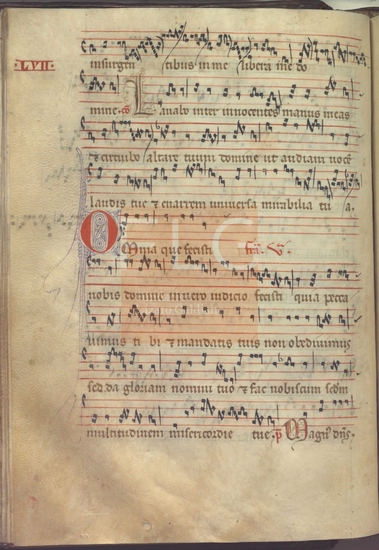 LVII
insurgen tibus in me libera me do
mine. co Lauabo inter innocentes manus meas
& circuibo altare tuum domine ut audiam uocē
laudis tue & enarrem uniuersa mirabilia tu a.
Omnia que fecisti
nobis domine in uero iudicio fecisti quia pecca
uimus ti bi & mandatis tuis non obediuimus
sed da gloriam nomini tuo & fac nobiscum scdm
multitudinem misericordie tue. p Magn' dn̄s.